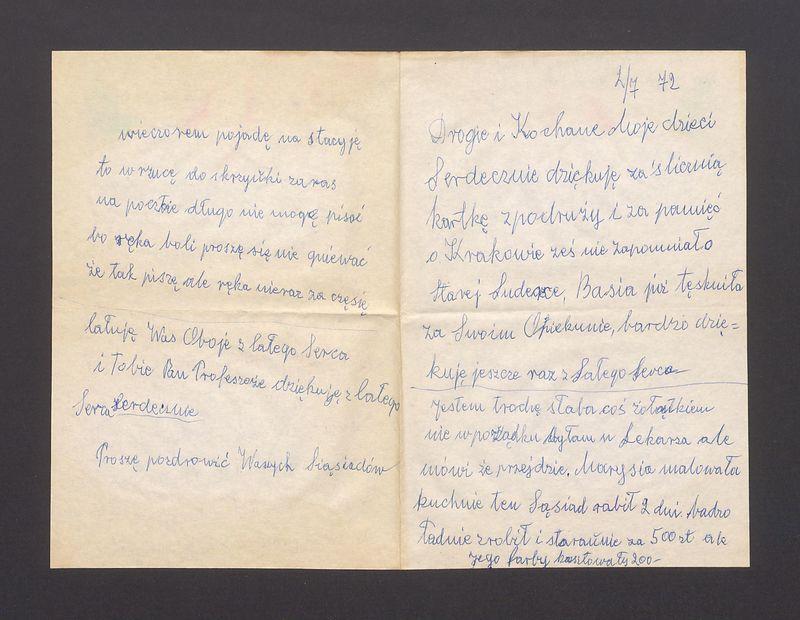 2/7 72
Drogie i Kochane Moje dzieci
Serdecznie dziękuję za ślicznią
kartkę zpodruży i za pamięć
o Krakowie żeś nie zapomniało
starej Sudenxce, Basia już tęskniła
za Swoim Opiekunie, bardzo dzię=
kuję jeszcze raz z Całego Serca
jestem trochę słaba coś żołątkiem
nie wporządku byłam u Lekarza ale
mówi że przejdzie. Marysia malowała
kuchnie ten Sąsiad robił 2 dni. badzo
ładnie zrobił i starannie za 500 zt ale
jego farby kosztowały 200-
wieczorem pojadę na stacyję
to wrzucę do skrzynki zaras
na poczcie długo nie mogę pisać
bo ręka boli proszę się nie gniewać
że tak piszę ale ręka nieraz za częsię
Całuję Was Oboje z Całego Serca
i Tobie Pan Profeszoże dziękuję z Całego
Serca Serdecznie
Proszę pozdrowić Waszych Siąsiadów